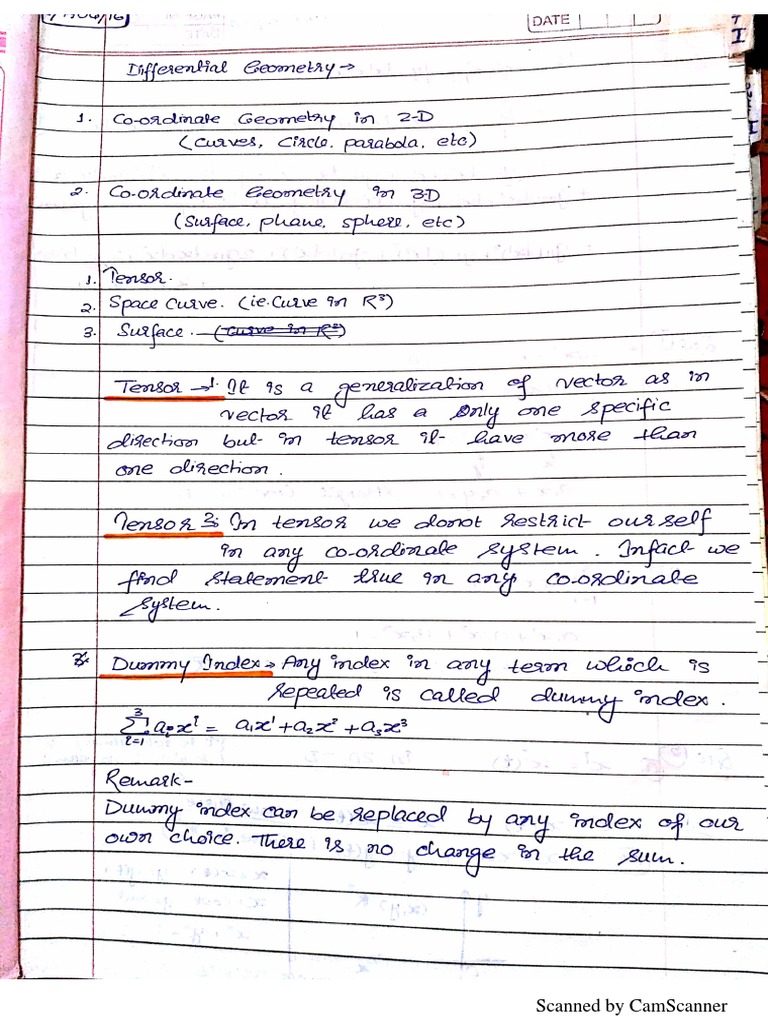 DATE
Differential Geometry →
1. Co-ordinate Geometry in 2-D
(Curves, Circle, parabola, etc)
2. Co-ordinate Geometry in 3D
(Surface, phane, sphere, etc)
1. Tensor.
2. Space Curve. (ie. Curve in R³)
3. Surface. (Curve in R²)
Tensor → 1. It is a generalization of vector as in
vector it has a only one specific
direction but in tensor it have more than
one direction.
Tensor 3: In tensor we donot restrict ourself
in any co-ordinate system. Infact we
find statement true in any co-ordinate
system.
Dummy Index → Any index in any term which is
repeated is called dummy index.
3
∑ aᵢxⁱ = a₁x¹ + a₂x² + a₃x³
i=1
Remark -
Dummy index can be replaced by any index of our
own choice. There is no change in the sum.
Scanned by CamScanner